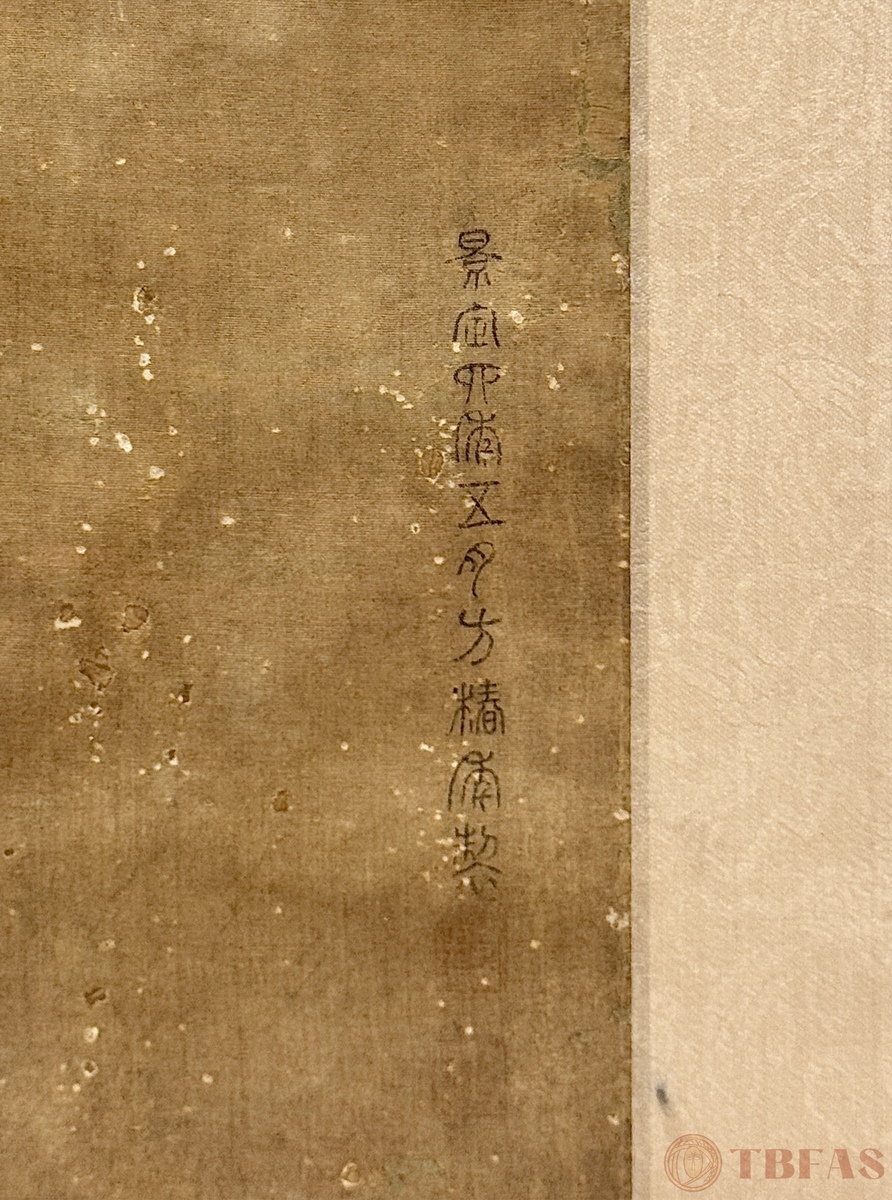 景定四年五月方椿年製
TBFAS